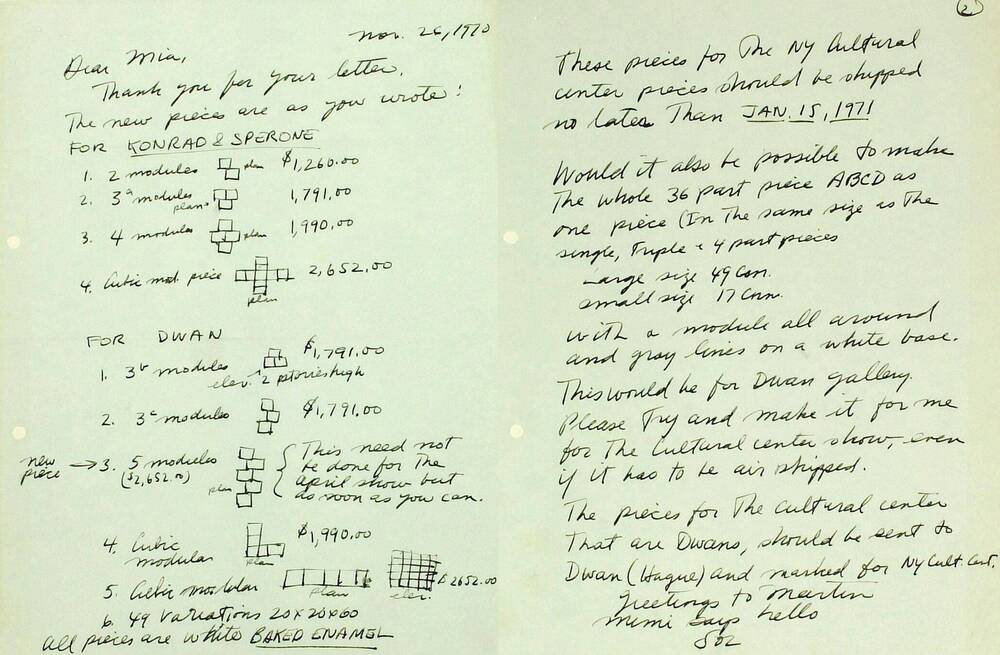 Nov. 26, 1970
Dear Mia,
Thank you for your letter.
The new pieces are as you wrote:
FOR KONRAD & SPERONE
1. 2 modules plan $1,260.00
2. 3a modules plan 1,791.00
3. 4 modules plan 1,990.00
4. Cubic mod. piece 2,652.00
plan
FOR DWAN
1. 3b modules $1,791.00
elev. 2 stories high
2. 3c modules $1,791.00
new piece → 3. 5 modules
($2,652.00)
plan
This need not
be done for the
April show but
as soon as you can.
4. Cubic modular $1,990.00
plan
5. Cubic modular $2652.00
plan elev.
6. 49 variations 20x20x60
All pieces are white BAKED ENAMEL
2
These pieces for The NY Cultural
center pieces should be shipped
no later Than JAN. 15, 1971
Would it also be possible to make
The whole 36 part piece ABCD as
one piece (In The same size as The
single, Triple & 4 part pieces
Large size 49 cm.
small size 17 cm.
with a module all around
and gray lines on a white base.
This would be for Dwan gallery.
Please Try and make it for me
for The Cultural center show, even
if it has to be air shipped.
The pieces for The cultural center
That are Dwans, should be sent to
Dwan (Hague) and marked for NY Cult. Cent.
Greetings to Martin
Mimi says hello
Sol